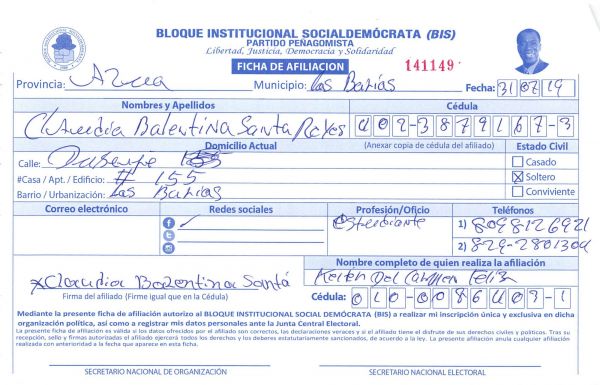 BLOQUE INSTITUCIONAL SOCIALDEMÓCRATA (BIS)
PARTIDO PEÑAGOMISTA
Libertad, Justicia, Democracia y Solidaridad
FICHA DE AFILIACION 141149
Provincia: Azua Municipio: Las Barias Fecha: 31/07/19
Nombres y Apellidos Cédula
Claudia Balentina Santa Reyes 402-3879167-3
Domicilio Actual (Anexar copia de cédula del afiliado) Estado Civil
Calle: 155 Casado
#Casa / Apt. / Edificio: # 155 Soltero
Barrio / Urbanización: Las Barias Conviviente
Correo electrónico Redes sociales Profesión/Oficio Teléfonos
Estudiante 1) 8098126921
2) 829-2801304
Nombre completo de quien realiza la afiliación
Claudia Balentina Santá Del Carmen Feliz
Firma del afiliado (Firme igual que en la Cédula) Cédula: 010-0086407-1
Mediante la presente ficha de afiliación autorizo al BLOQUE INSTITUCIONAL SOCIAL DEMÓCRATA (BIS) a realizar mi inscripción única y exclusiva en dicha
organización política, así como a registrar mis datos personales ante la Junta Central Electoral.
La presente ficha de afiliación es válida si los datos ofrecidos por el afiliado son correctos, las declaraciones veraces y si el afiliado tiene el disfrute de sus derechos civiles y políticos. Tras su
recepción, sello y firmas autorizadas el afiliado ejercerá todos los derechos y los deberes estatutariamente sancionados, de acuerdo a la ley. La presente afiliación anula cualquier afiliación
realizada con anterioridad a la fecha que aparece en esta ficha.
SECRETARIO NACIONAL DE ORGANIZACIÓN SECRETARIO NACIONAL ELECTORAL